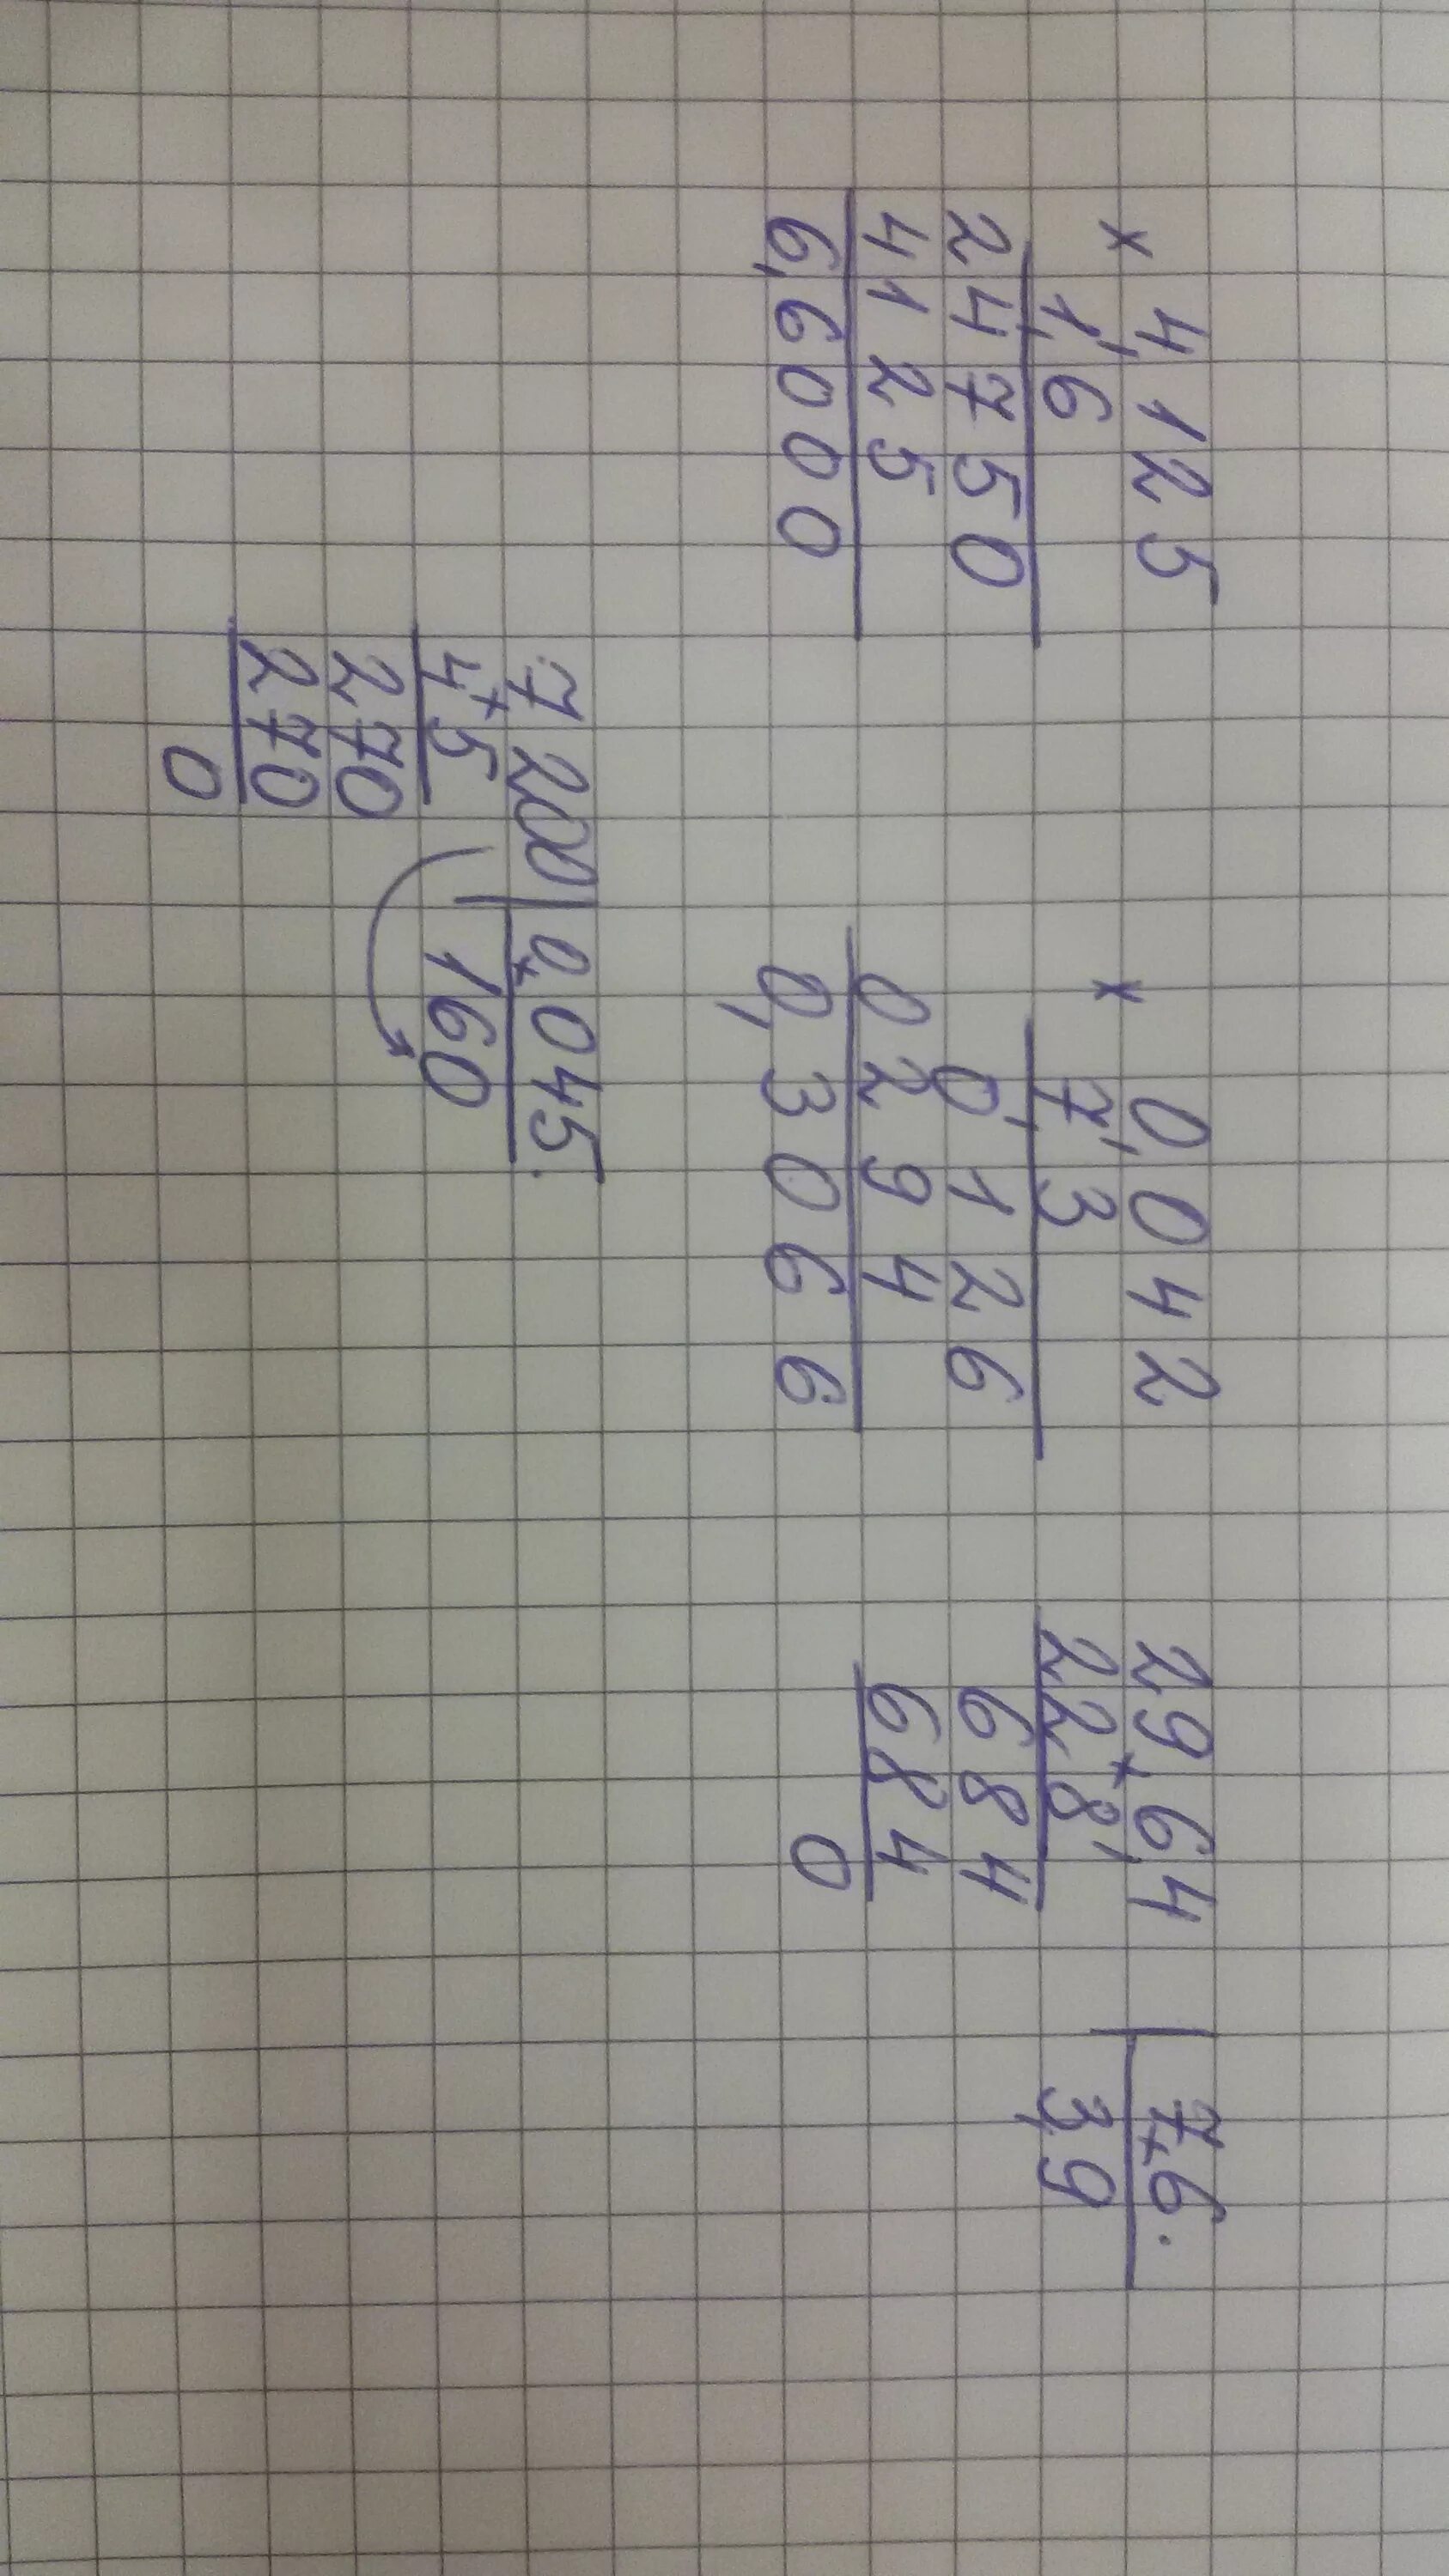 × 4,125
1,6
24750
4125
6,6000
× 0,042
7,3
0126
0294
0,3066
29,64 | 7,6
228 3,9
684
684
0
7,200 | 0,045
45 160
270
270
0